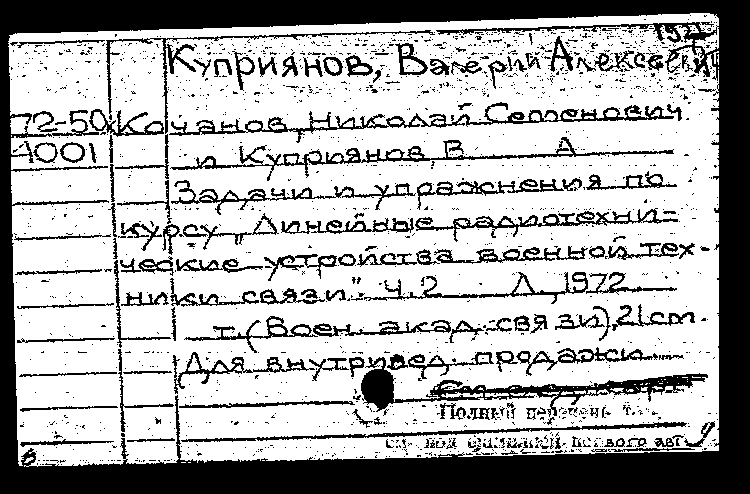 Куприянов, Валерий Алексеевич
72-50 Кочанов, Николай Семенович
4001 и Куприянов, В А
Задачи и упражнения по
курсу "Линейные радиотехни-
ческие устройства военной тех-
ники связи". ч.2 Л., 1972
т. (Воен. акад. связи), 21см.
Для внутривед. продажи
Полный перечень
см. под фамилией первого авт.